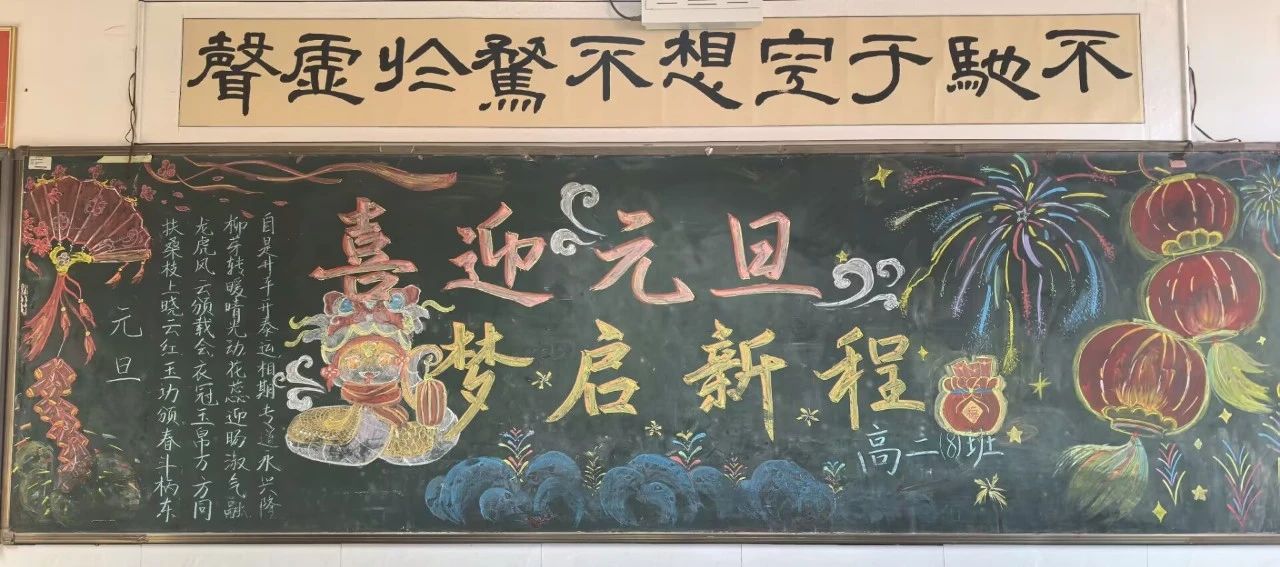 不馳于空想不騖於虛聲
喜迎元旦
梦启新程
高二(8)班
福
元旦
扶桑枝上晓云红玉功颁春斗柄东
龙虎风云颁载会衣冠玉帛方方同
柳芽转暖晴光动花蕊迎昀淑气融
自是升平开泰运相期专送永兴隆